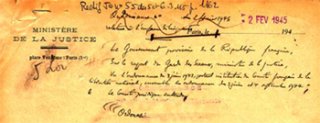 Ordonnance
2 FEV 1945
MINISTÈRE
DE LA JUSTICE
place Vendôme, Paris (1er)
Paris, le 194
Le Gouvernement provisoire de la République française,
Sur le rapport du Garde des Sceaux, ministre de la justice,
Vu l'ordonnance du 3 juin 1943 portant institution du Comité français de la
Libération nationale, ensemble les ordonnances des 3 juin et 4 septembre 1944
Le Comité juridique entendu
Ordonne